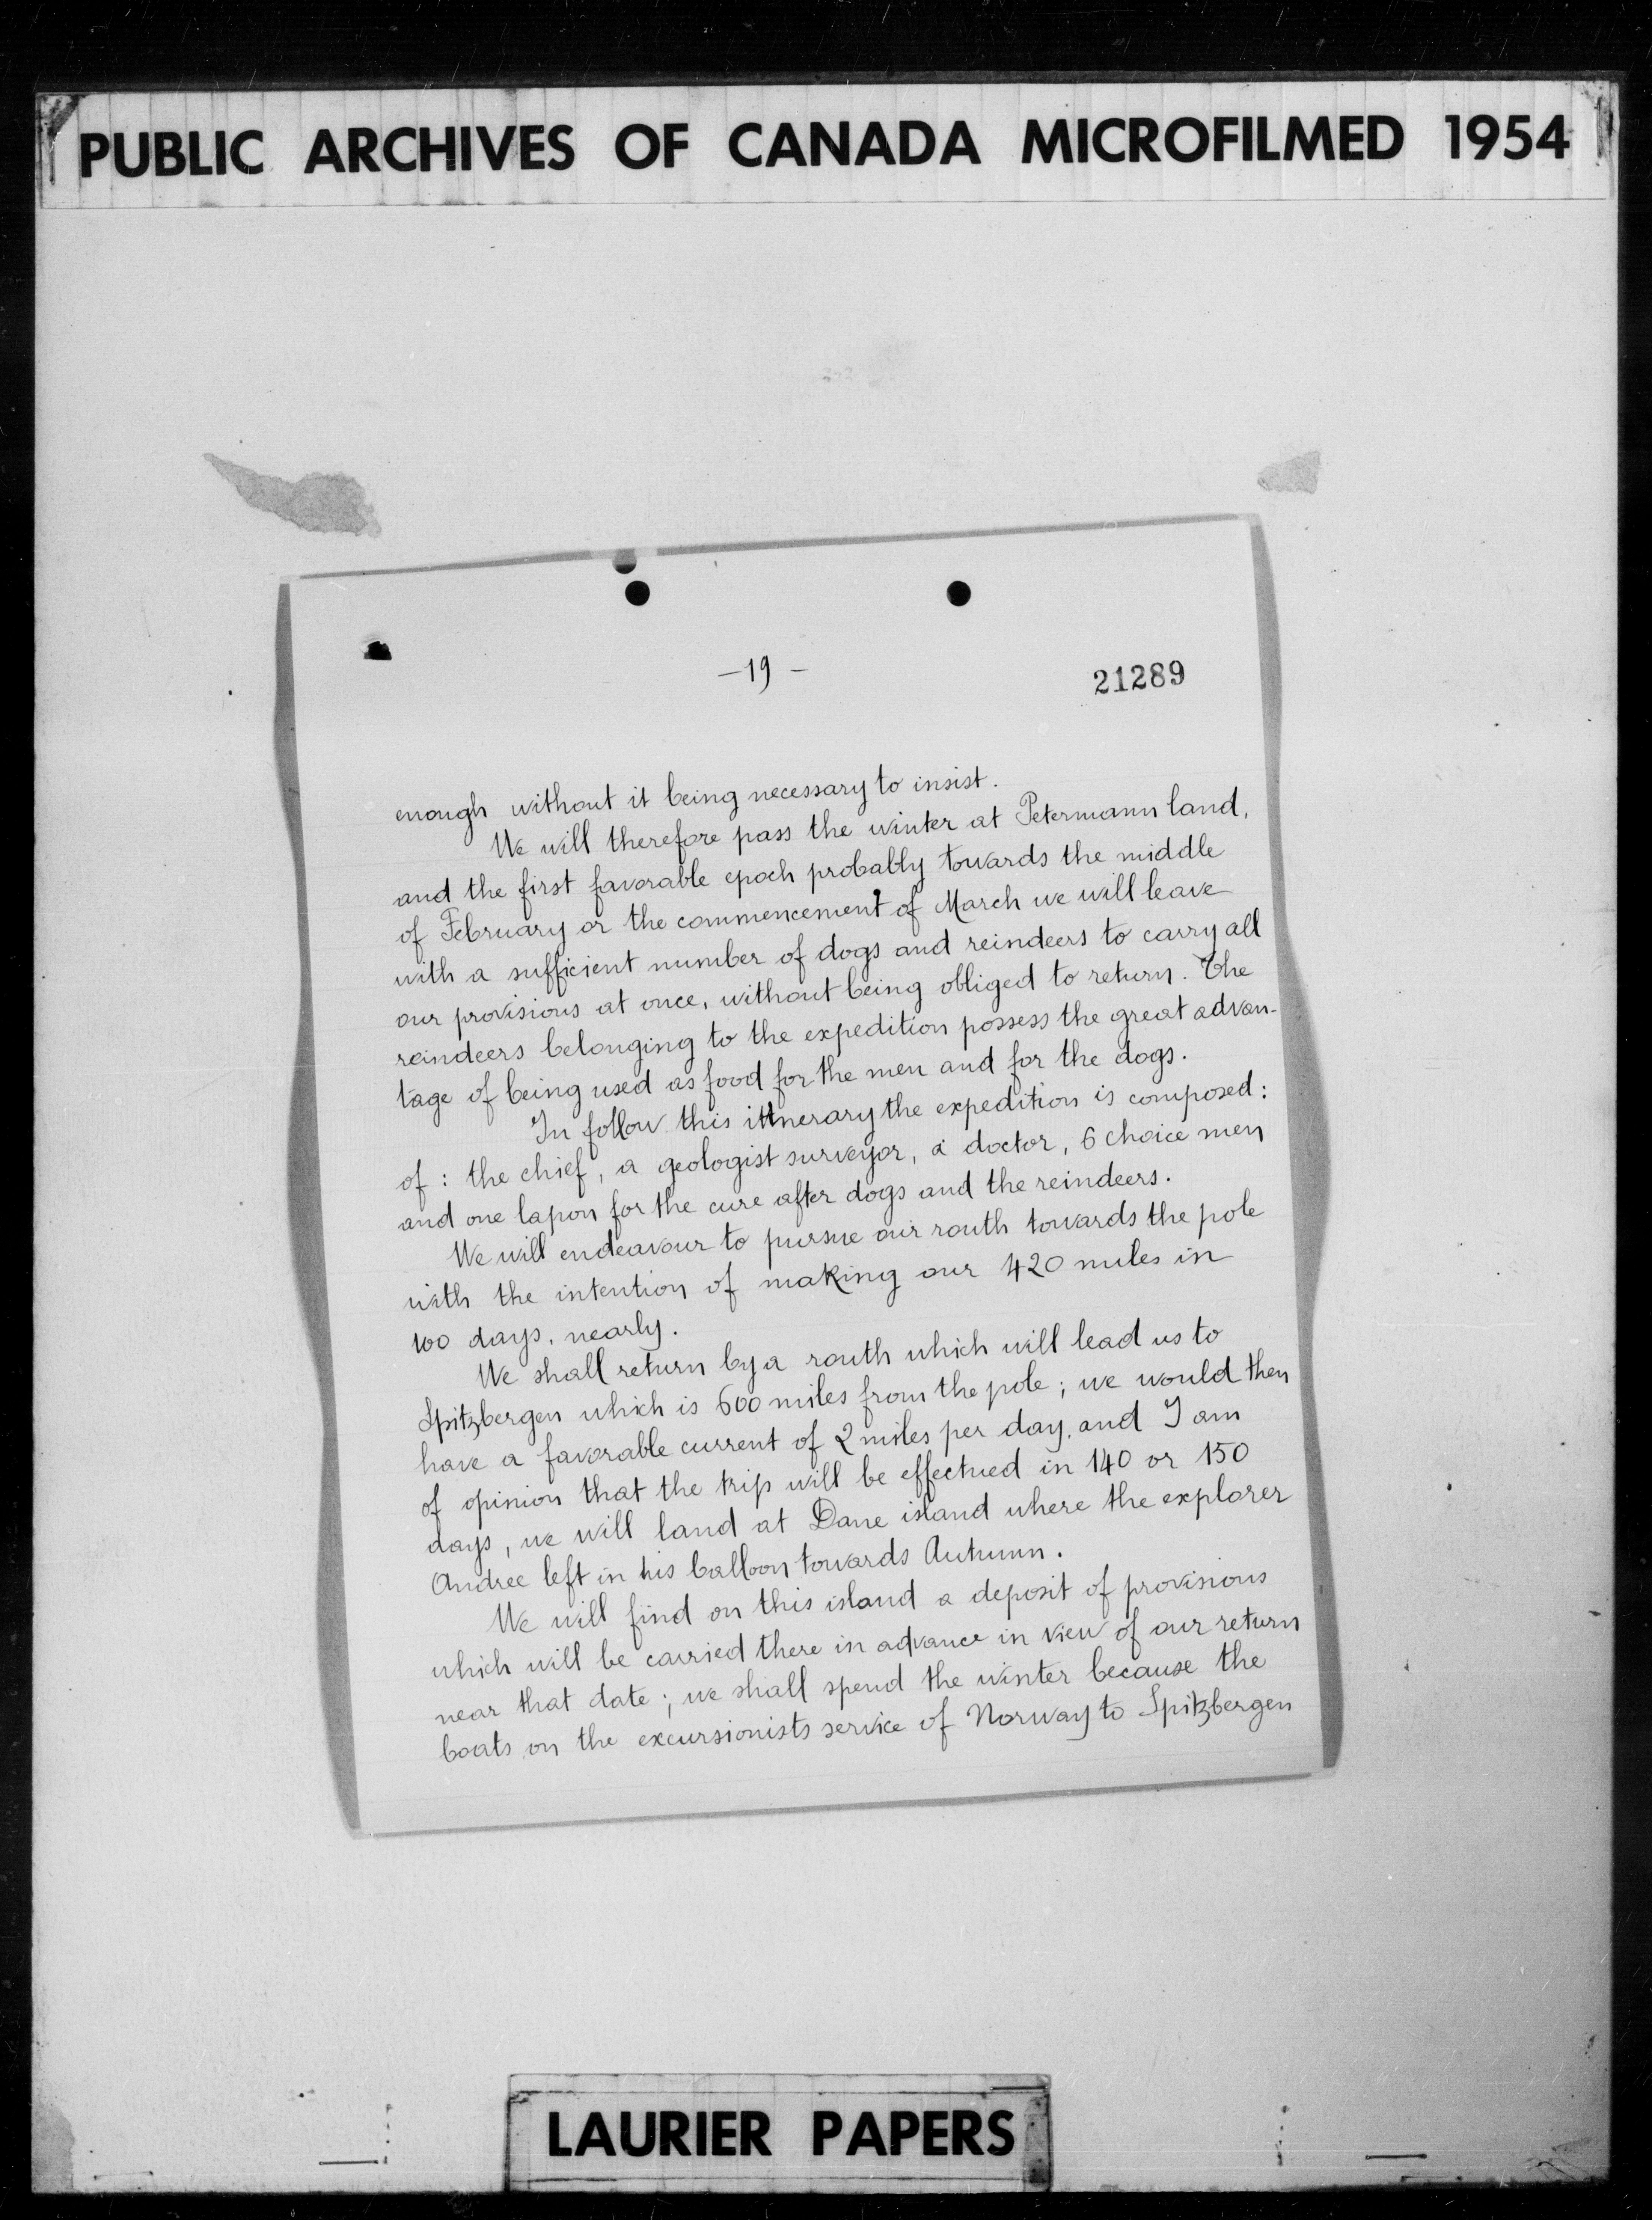 PUBLIC ARCHIVES OF CANADA MICROFILMED 1954
-19-
21289
enough without it being necessary to insist.
We will therefore pass the winter at Petermann land,
and the first favorable epoch probably towards the middle
of February or the commencement of March we will leave
with a sufficient number of dogs and reindeers to carry all
our provisions at once, without being obliged to return. The
reindeers belonging to the expedition possess the great advan-
tage of being used as food for the men and for the dogs.
In follow this itinerary the expedition is composed:
of: the chief, a geologist surveyor, a doctor, 6 choice men
and one lapon for the cure after dogs and the reindeers.
We will endeavour to pursue our routh towards the pole
with the intention of making our 420 miles in
100 days, nearly.
We shall return by a routh which will lead us to
Spitzbergen which is 600 miles from the pole; we would then
have a favorable current of 2 miles per day, and I am
of opinion that the trip will be effectued in 140 or 150
days, we will land at Dane island where the explorer
Andree left in his balloon towards Autumn.
We will find on this island a deposit of provisions
which will be carried there in advance in view of our return
near that date; we shall spend the winter because the
boats on the excursionists service of Norway to Spitzbergen
LAURIER PAPERS